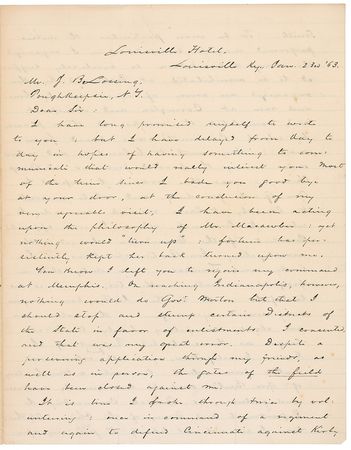 Louisville Hotel.
Louisville Ky. Jan. 23d '63.
Mr. J. B. Lossing,
Poughkeepsie, N.Y.
Dear Sir:
I have long promised myself to write
to you; but I have delayed from day to
day in hopes of having something to com-
municate that would really interest you. Most
of the time since I bade you good bye
at your door, at the conclusion of my
very agreeable visit, I have been acting
upon the philosophy of Mr. Macawber; yet
nothing would "turn up"; fortune has per-
sistively kept her back turned upon me.
You know I left you to rejoin my command
at Memphis. On reaching Indianapolis, however,
nothing would do Gov. Morton but that I
should stop and stump certain Districts of
the State in favor of enlistments. I consented,
and that was my great error. Despite a
unceasing application through my friends, as
well as in person, the gates of the field
have been closed against me.
It is true I broke through twice by vol-
unteering; once in command of a regiment
and again to defend Cincinnati against Kirby